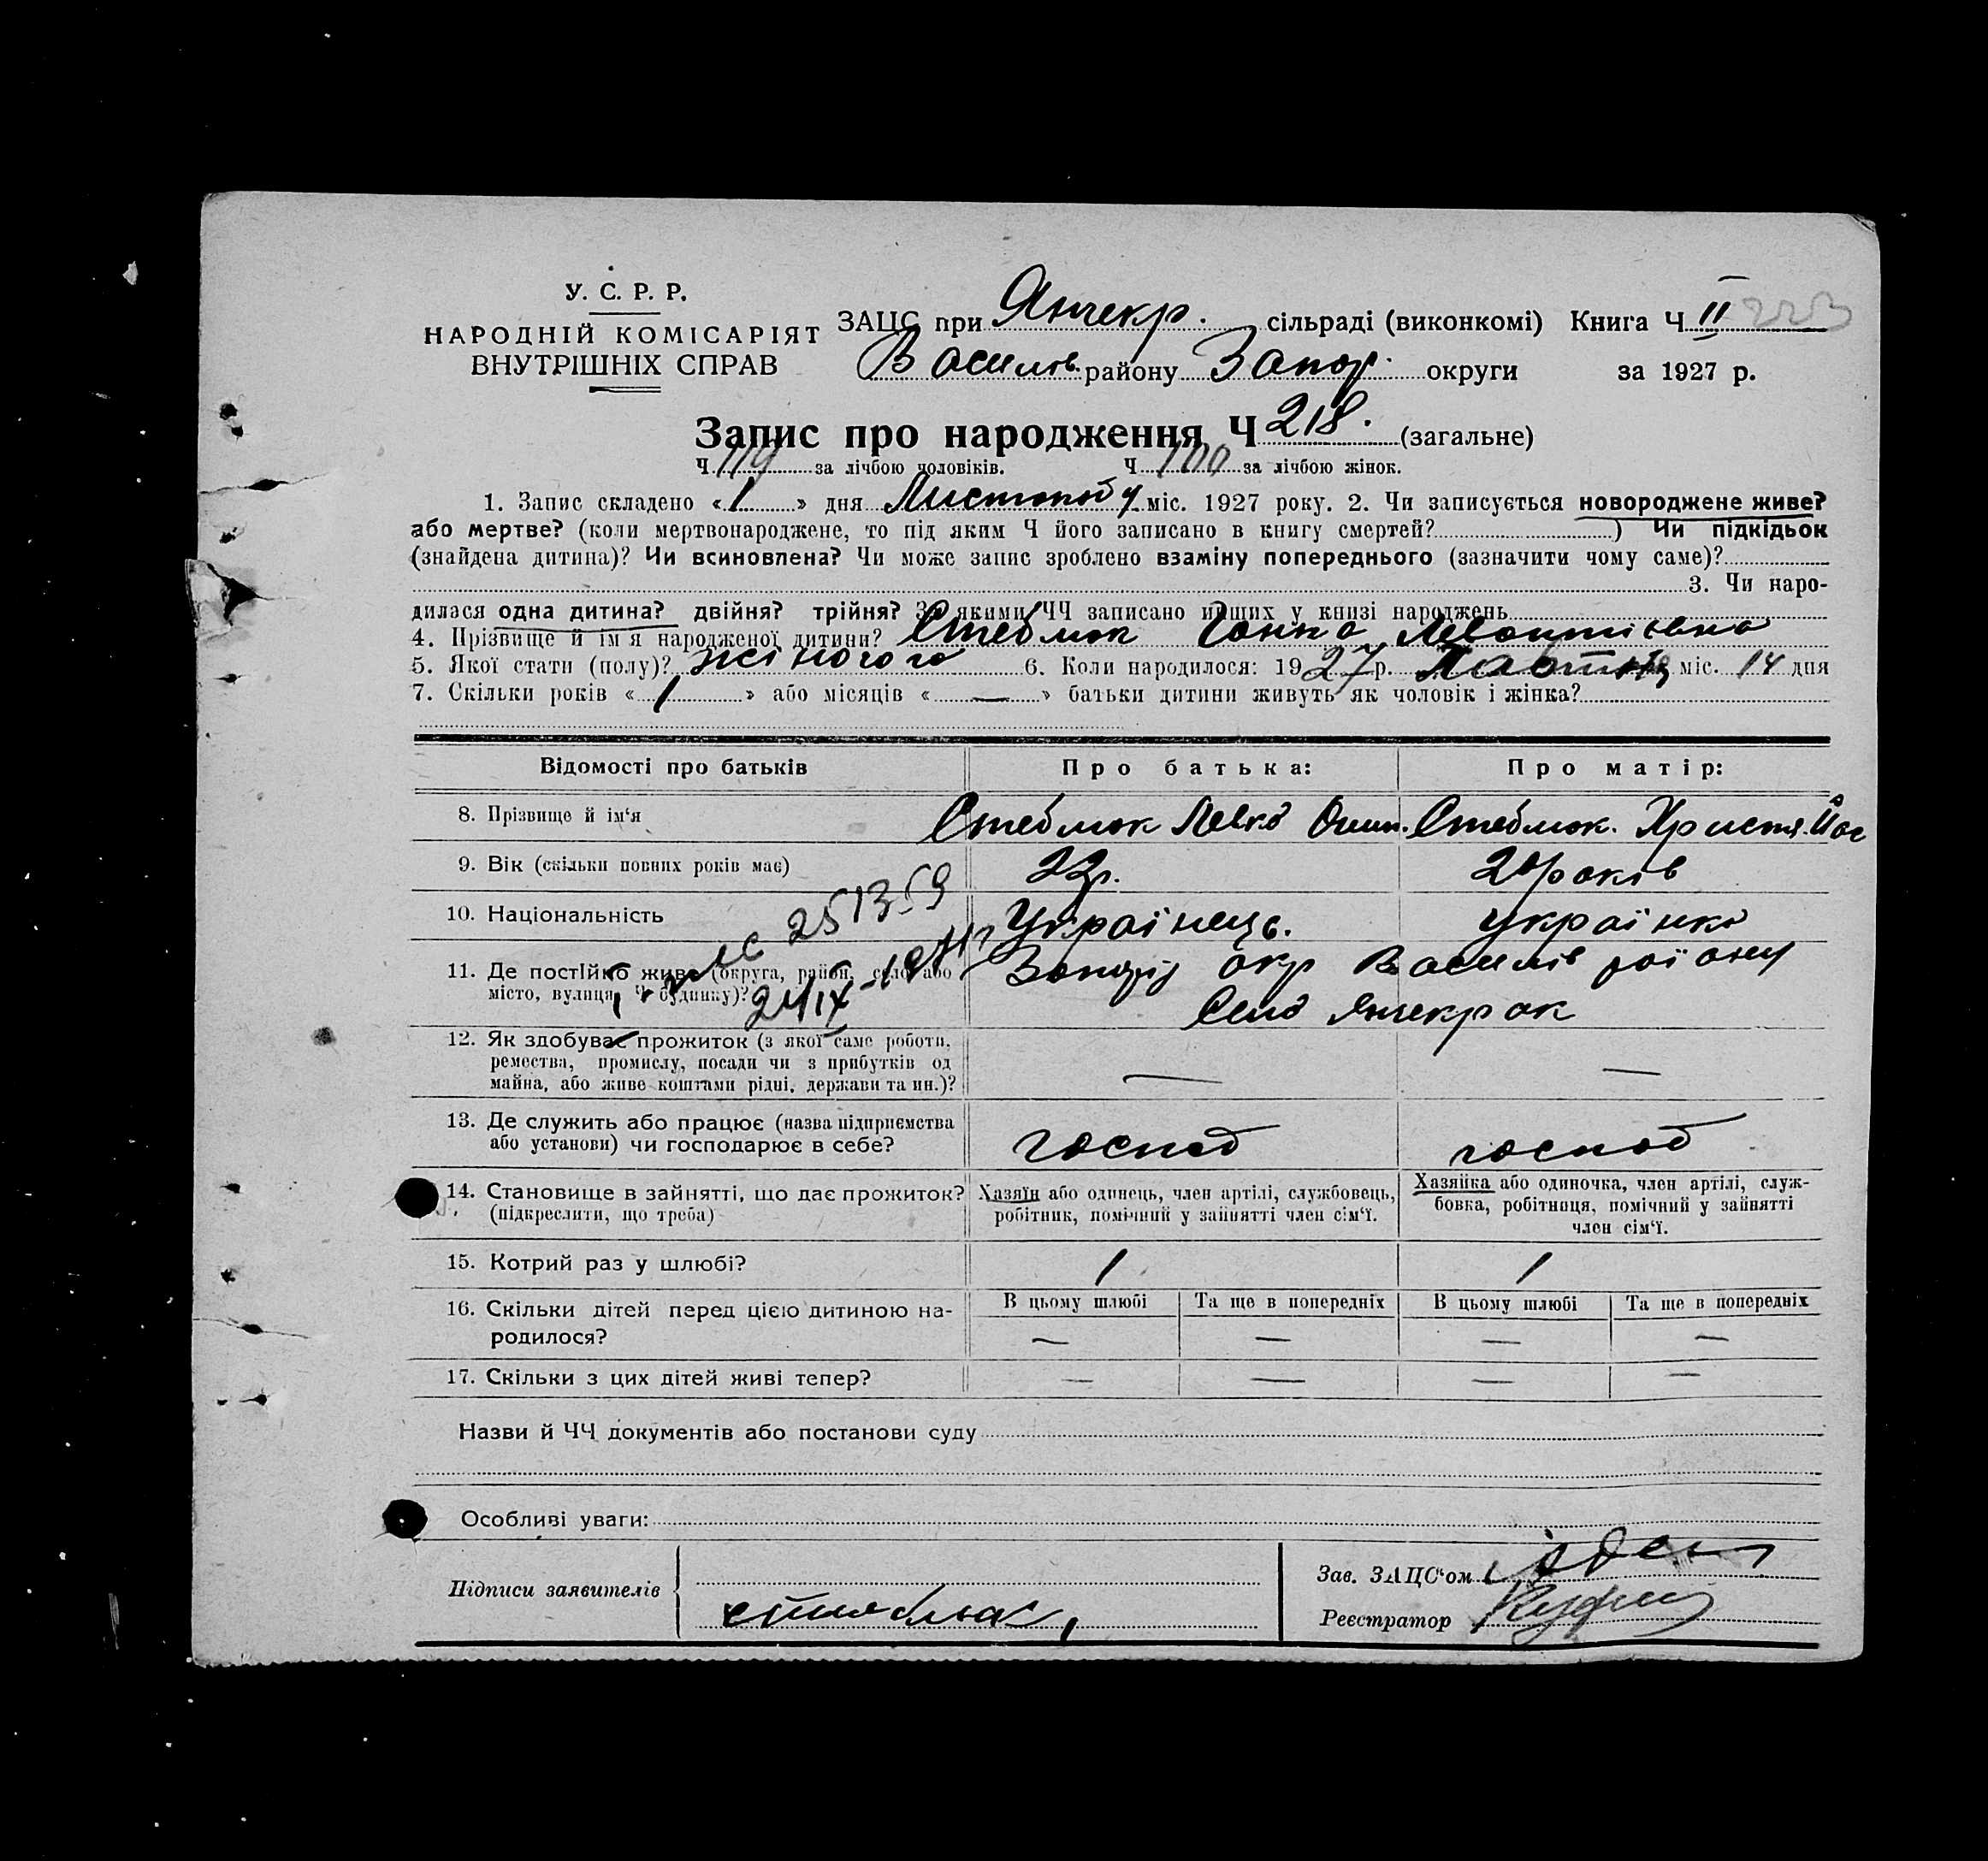 У. С. Р. Р.
НАРОДНІЙ КОМІСАРІЯТ
ВНУТРІШНІХ СПРАВ
ЗАЦС при Янчекр. сільраді (виконкомі) Книга Ч II 223
Василів. району Запор. округи за 1927 р.
Запис про народження Ч 218. (загальне)
Ч 119 за лічбою чоловіків. Ч 100 за лічбою жінок.
1. Запис складено « 1 » дня Листопаду міс. 1927 року. 2. Чи записується новороджене живе?
або мертве? (коли мертвонароджене, то під яким Ч його записано в книгу смертей? ) Чи підкідьок
(знайдена дитина)? Чи всиновлена? Чи може запис зроблено взаміну попереднього (зазначити чому саме)?
3. Чи наро-
дилася одна дитина? двійня? трійня? З якими ЧЧ записано инших у книзі народжень
4. Прізвище й ім'я народженої дитини? Стеблюк Ганна Левонтіївна
5. Якої стати (полу)? жіночого 6. Коли народилося: 1927 р. Жовтня міс. 14 дня
7. Скільки років « 1 » або місяців « — » батьки дитини живуть як чоловік і жінка?
Відомості про батьків Про батька: Про матір:
8. Прізвище й ім'я Стеблюк Левко Стеблюк. Христя. Йос
9. Вік (скільки повних років має) 22р. років
10. Національність Українець. українка
251359
11. Де постійно живе (округа, район, село або
місто, вулиця, Ч будинку)? Запоріз окр Василів району
Село Янчекрак
24/IX
12. Як здобуває прожиток (з якої саме роботи,
ремества, промислу, посади чи з прибутків од
майна, або живе коштами рідні, держави та ин.)? — —
13. Де служить або працює (назва підприємства
або установи) чи господарює в себе? господ господ
14. Становище в зайнятті, що дає прожиток?
(підкреслити, що треба)
Хазяїн або одинець, член артілі, службовець,
робітник, помічний у зайнятті член сім'ї.
Хазяйка або одиночка, член артілі, служ-
бовка, робітниця, помічний у зайнятті
член сім'ї.
15. Котрий раз у шлюбі? 1 1
16. Скільки дітей перед цією дитиною на-
родилося?
В цьому шлюбі Та ще в попередніх В цьому шлюбі Та ще в попередніх
— — — —
17. Скільки з цих дітей живі тепер? — — — —
Назви й ЧЧ документів або постанови суду
Особливі уваги:
Підписи заявителів
Зав. ЗАЦС'ом
Реєстратор